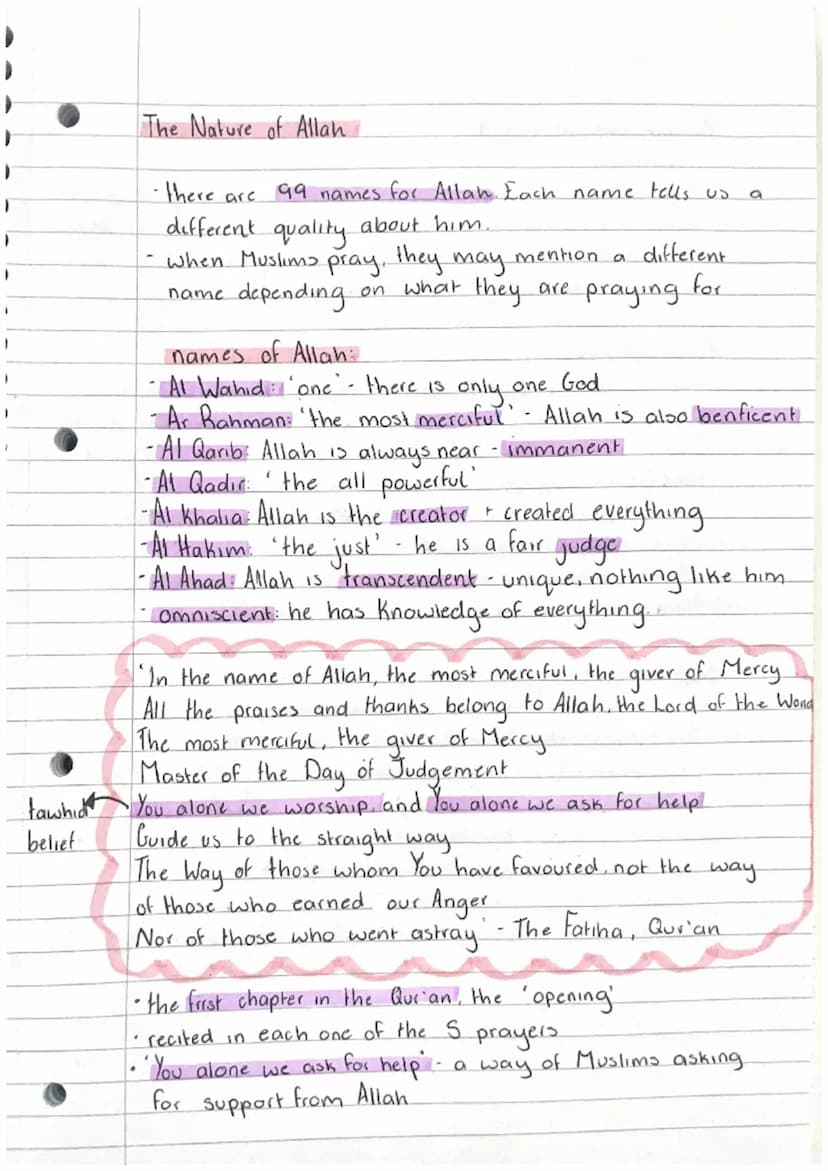 The Nature of Allah
- there are 99 names for Allah. Each name tells us a
different quality about him.
- when Muslims pray, they may mention a different
name depending on what they are praying for
names of Allah:
- Al Wahid: 'one' - there is only one God
- Ar Rahman: 'the most merciful' - Allah is also benficent
- Al Qarib: Allah is always near - immanent
- Al Qadir: 'the all powerful'
- Al Khalia: Allah is the creator + created everything
- Al Hakim: 'the just' - he is a fair judge
- Al Ahad: Allah is transcendent - unique, nothing like him
- omniscient: he has knowledge of everything.
'In the name of Allah, the most merciful, the giver of Mercy
All the praises and thanks belong to Allah, the Lord of the
The most merciful, the giver of Mercy
Master of the Day of Judgement
tawhid You alone we worship, and You alone we ask for help
belief Guide us to the straight way
The Way of those whom You have favoured, not the way
of those who earned our Anger
Nor of those who went astray' - The Fatiha, Qur'an
• the first chapter in the Qur'an, the 'opening'
• recited in each one of the 5 prayers
• 'You alone we ask for help' - a way of Muslims asking
for support from Allah